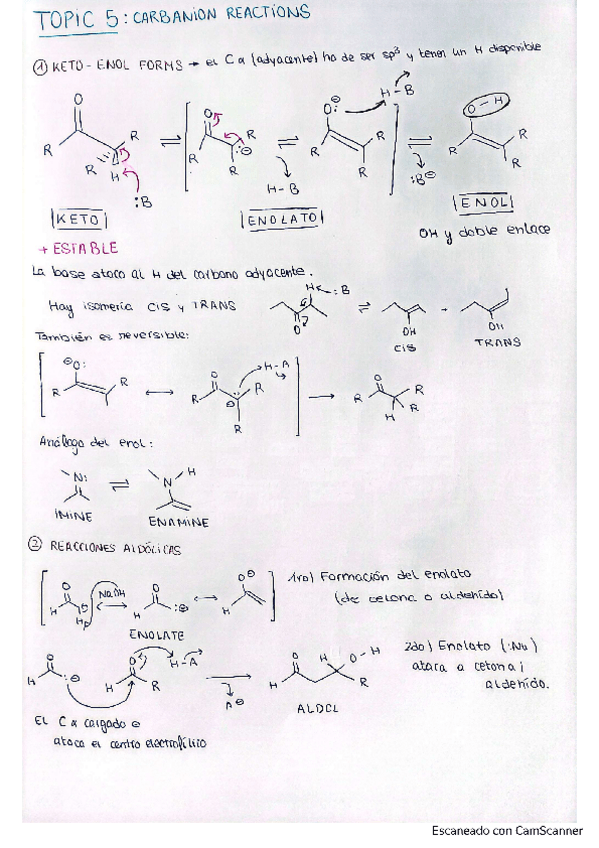 TOPIC 5: CARBANION REACTIONS
① KETO-ENOL FORMS → el C α (adyacente) ha de ser sp³ y tener un H disponible
O R R R H :B
O R R R ⊖ H-B
O⊖ R R R H-B :B⊖
O-H R R R
KETO ENOLATO ENOL
+ ESTABLE
OH y doble enlace
La base ataca al H del carbono adyacente.
Hay isomería CIS y TRANS
H :B O OH CIS + OH TRANS
También es reversible:
⊖O: R R
O R R R H-A
O R R R H
Análogo del enol:
N: IMINE
N H ENAMINE
② REACCIONES ALDÓLICAS
O H H NaOH O H :⊖ O⊖ H
ENOLATE
1ro) Formación del enolato
(de cetona o aldehído)
O H :⊖ O H R H-A A⊖ O H H O-H R
ALDOL
2do) Enolato (:Nu)
ataca a cetona i
aldehído.
El C α cargado ⊖
ataca el centro electrofílico
Escaneado con CamScanner